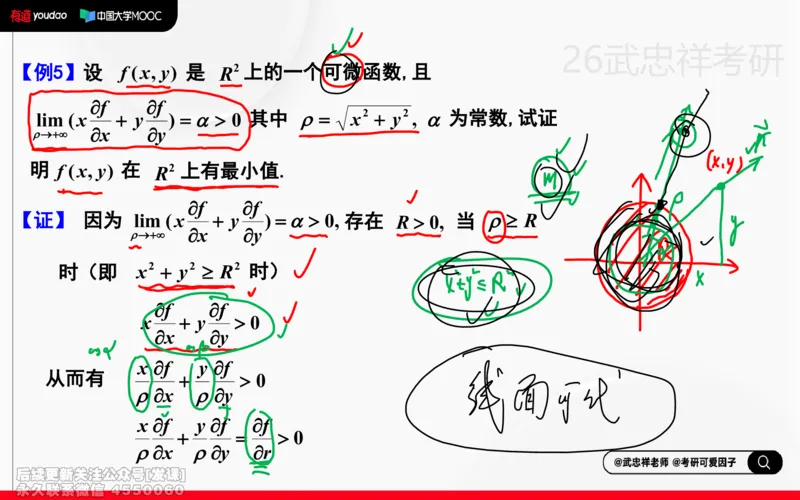 有道 youdao 中国大学MOOC
26武忠祥考研
【例5】设 f(x,y) 是 R² 上的一个可微函数,且
lim_{ρ→+∞} (x ∂f/∂x + y ∂f/∂y) = α > 0 其中 ρ = √(x² + y²), α 为常数,试证
明 f(x,y) 在 R² 上有最小值.
【证】 因为 lim_{ρ→+∞} (x ∂f/∂x + y ∂f/∂y) = α > 0, 存在 R > 0, 当 ρ ≥ R
时(即 x² + y² ≥ R² 时)
x ∂f/∂x + y ∂f/∂y > 0
从而有 x/ρ ∂f/∂x + y/ρ ∂f/∂y > 0
x/ρ ∂f/∂x + y/ρ ∂f/∂y = ∂f/∂r > 0
M
(x,y)
ρ
y
x
x²+y²≤R²
cosα
@武忠祥老师 @考研可爱因子
后续更新关注公众号[发课]
永久联系微信 4550060